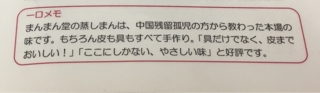 一口メモ
まんまん堂の蒸しまんは、中国残留孤児の方から教わった本場の
味です。もちろん皮も具もすべて手作り。「具だけでなく、皮まで
おいしい！」「ここにしかない、やさしい味」と好評です。